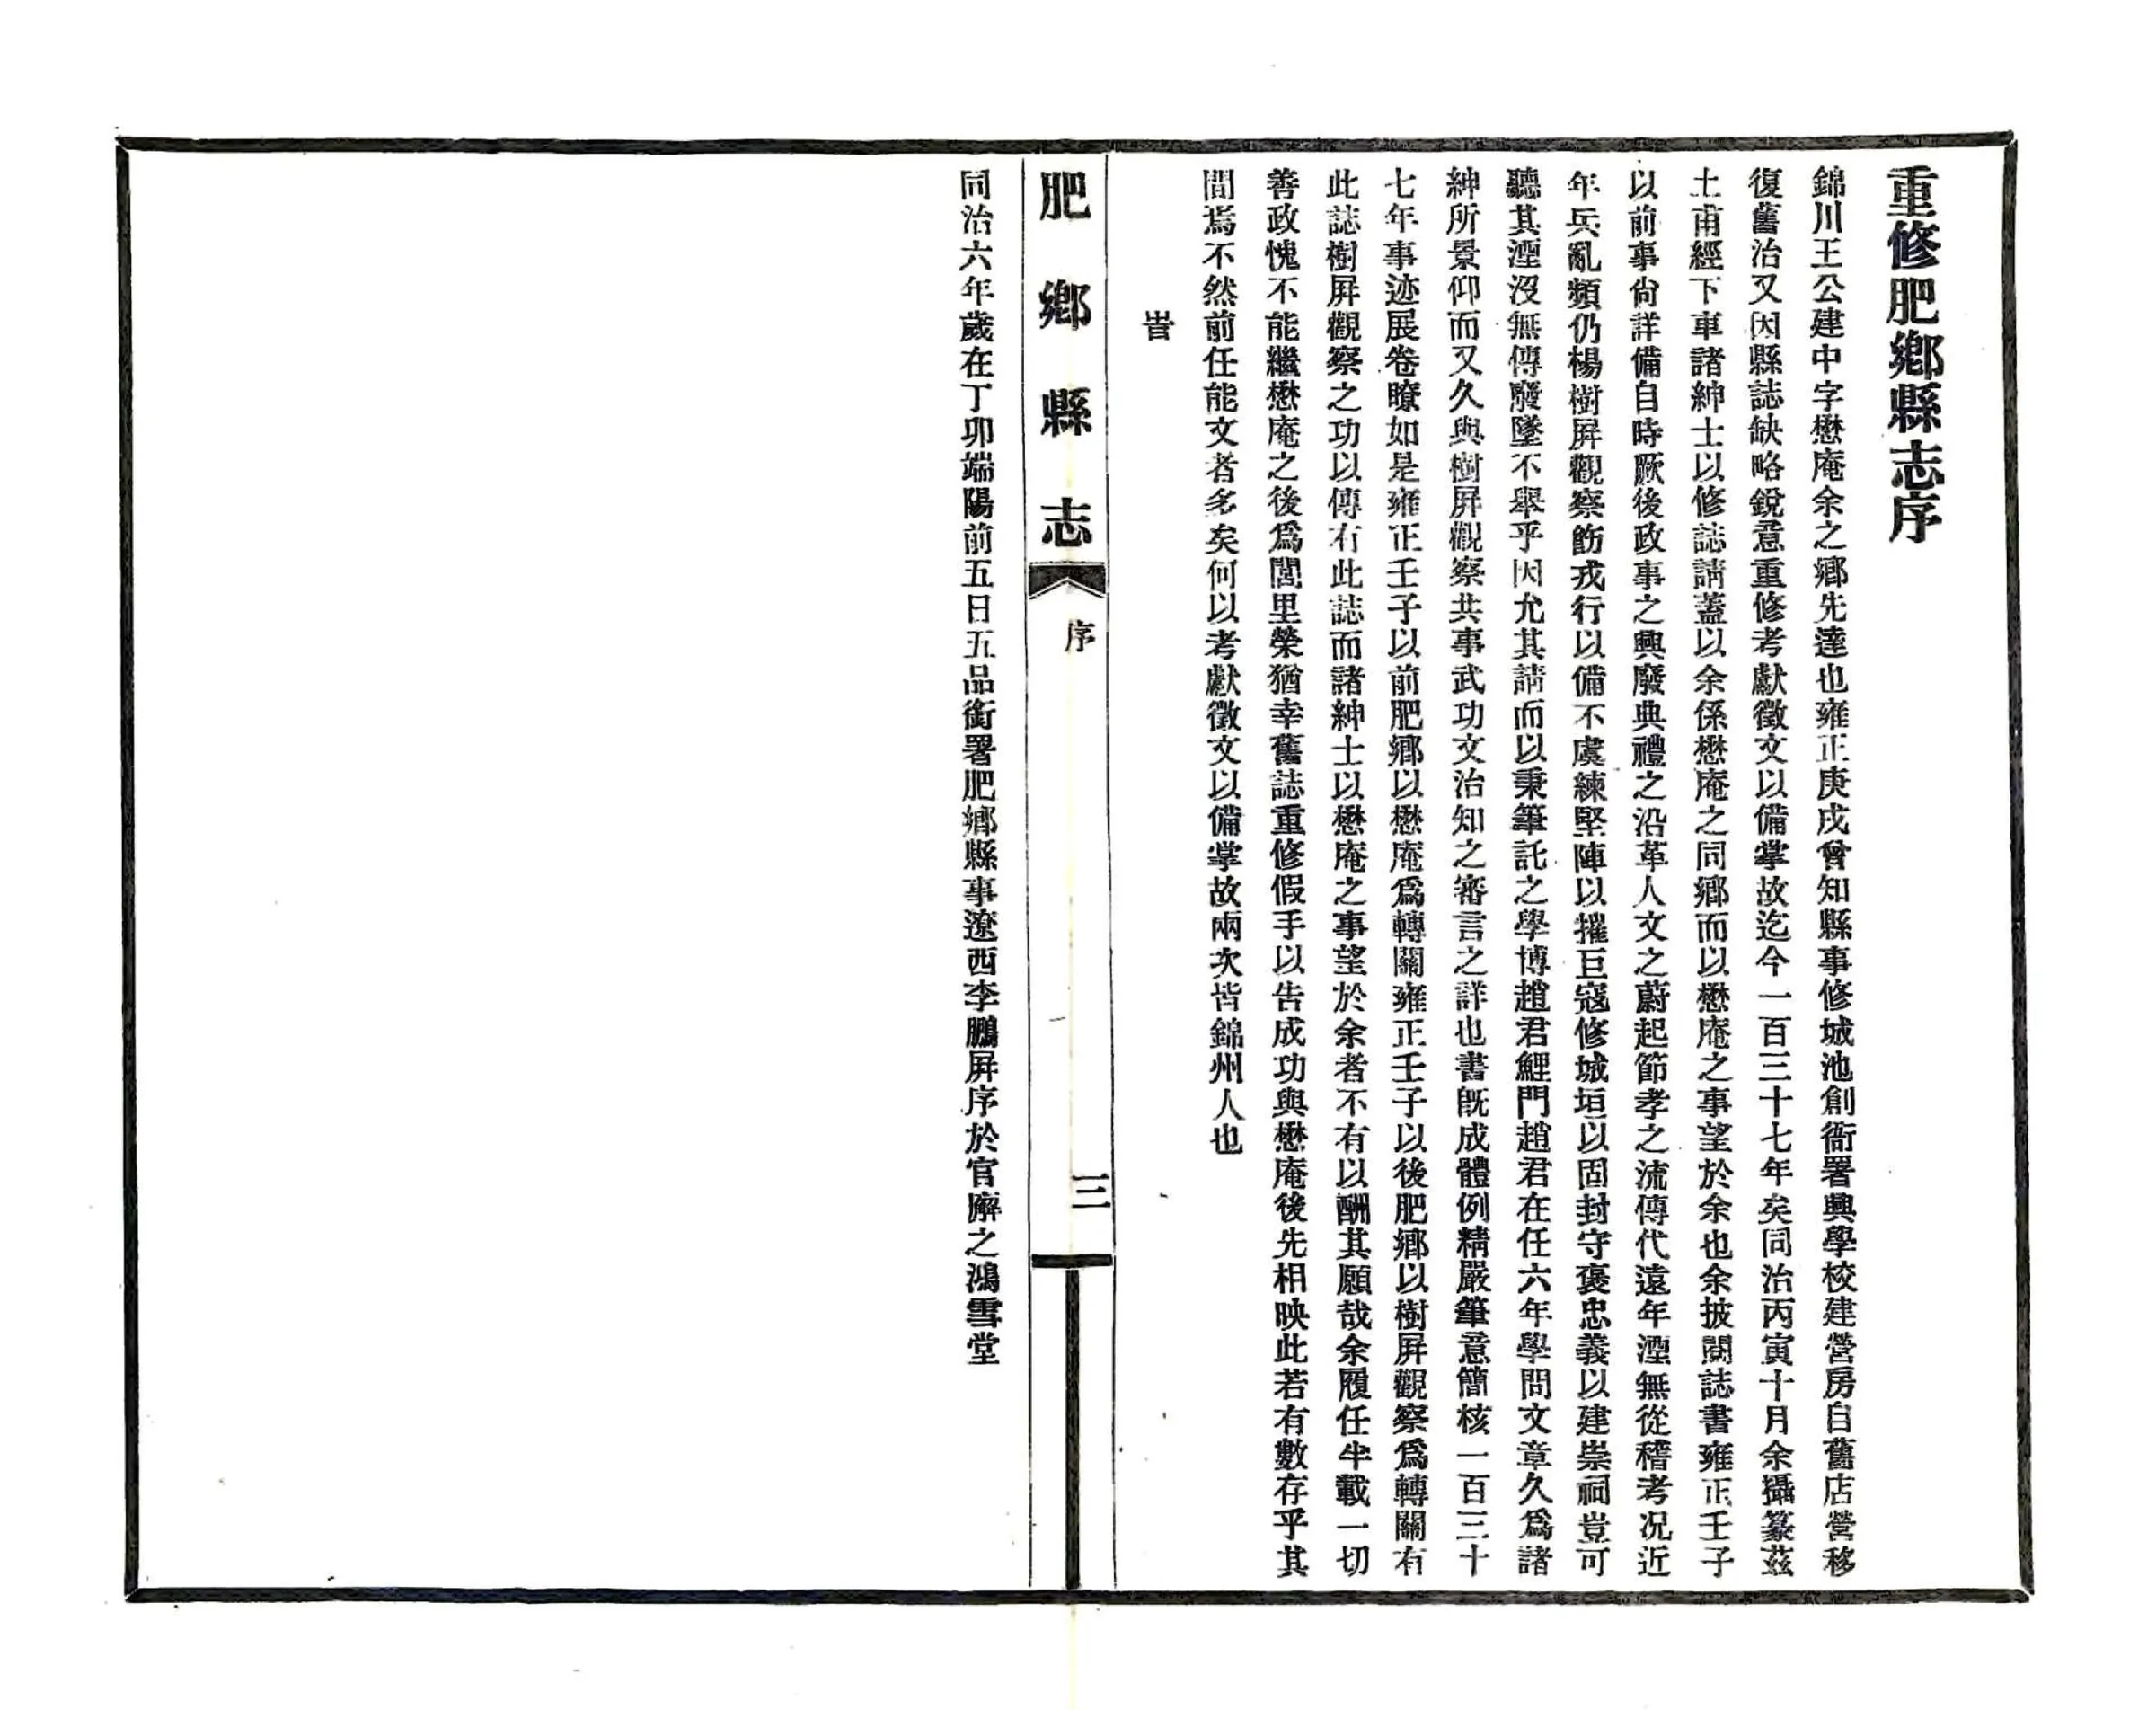 重修肥鄉縣志序
錦川王公建中字懋庵余之鄉先達也雍正庚戌曾知縣事修城池創衙署興學校建營房自舊店營移
復舊治又因縣誌缺略銳意重修考獻徵文以備掌故迄今一百三十七年矣同治丙寅十月余攝篆茲
土甫經下車諸紳士以修誌請蓋以余係懋庵之同鄉而以懋庵之事望於余也余披閱誌書雍正壬子
以前事尙詳備自時厥後政事之興廢典禮之沿革人文之蔚起節孝之流傳代遠年湮無從稽考况近
年兵亂頻仍楊樹屛觀察飭戎行以備不虞練堅陣以摧巨寇修城垣以固封守褒忠義以建崇祠豈可
聽其湮沒無傳廢墜不舉乎因允其請而以秉筆託之學博趙君鯉門趙君在任六年學問文章久爲諸
紳所景仰而又久與樹屛觀察共事武功文治知之審言之詳也書旣成體例精嚴筆意簡核一百三十
七年事迹展卷瞭如是雍正壬子以前肥鄉以懋庵爲轉關雍正壬子以後肥鄉以樹屛觀察爲轉關有
此誌樹屛觀察之功以傳有此誌而諸紳士以懋庵之事望於余者不有以酬其願哉余履任半載一切
善政愧不能繼懋庵之後爲閭里榮猶幸舊誌重修假手以告成功與懋庵後先相映此若有數存乎其
間焉不然前任能文者多矣何以考獻徵文以備掌故兩次皆錦州人也
旹
肥鄉縣志
序
三
同治六年歲在丁卯端陽前五日五品銜署肥鄉縣事遼西李鵬屛序於官廨之鴻雪堂